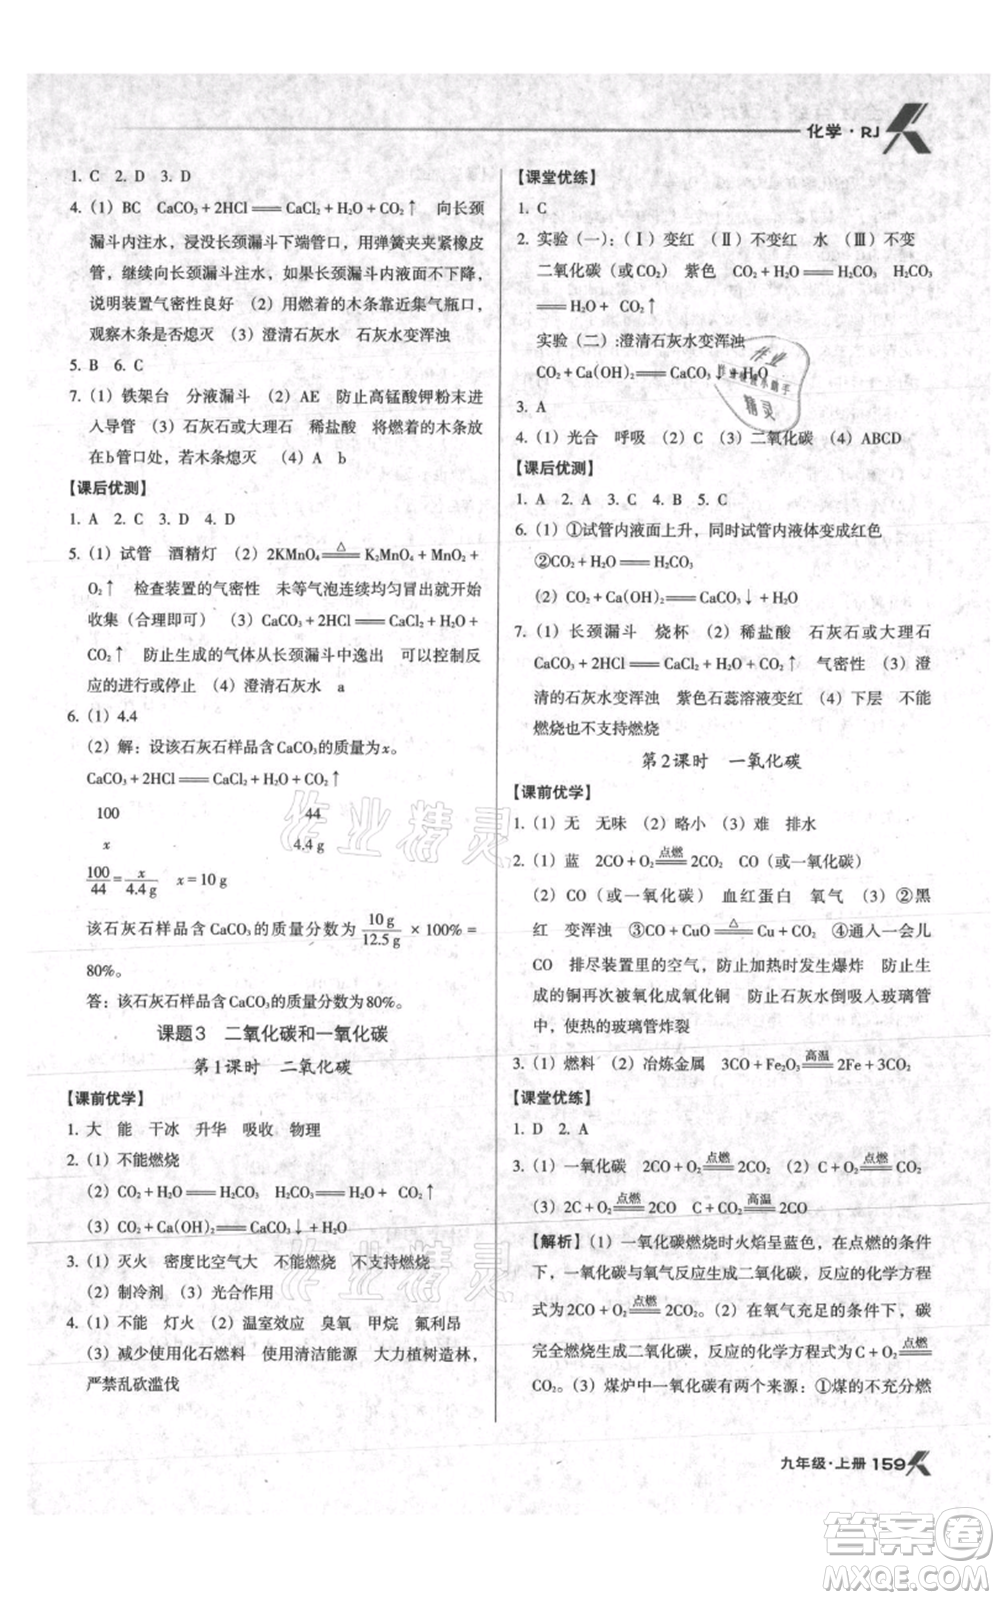 化学·RJ
1. C  2. D  3. D
4.（1）BC  CaCO₃+2HCl══CaCl₂+H₂O+CO₂↑  向长颈
漏斗内注水，浸没长颈漏斗下端管口，用弹簧夹夹紧橡皮
管，继续向长颈漏斗注水，如长颈漏斗内液面不再下降，
说明装置气密性良好（2）用燃着的木条靠近集气瓶口，
观察木条是否熄灭（3）澄清石灰水  石灰水变浑浊
5. B  6. C
7.（1）铁架台  分液漏斗（2）AE  防止高锰酸钾粉末进
入导管（3）石灰石或大理石  稀盐酸  将燃着的木条放
在b管口处，若木条熄灭（4）A  b
【课后优测】
1. A  2. C  3. D  4. D
5.（1）试管  酒精灯（2）2KMnO₄══△══K₂MnO₄+MnO₂+
O₂↑  检查装置的气密性  未等气泡连续均匀冒出就开始
收集（合理即可）（3）CaCO₃+2HCl══CaCl₂+H₂O+
CO₂↑  防止生成的气体从长颈漏斗中逸出  可以控制反
应的进行或停止（4）澄清石灰水  a
6.（1）4.4
（2）解：设该石灰石样品含CaCO₃的质量为x。
CaCO₃+2HCl══CaCl₂+H₂O+CO₂↑
100  44
x  4.4 g
100/44=x/4.4 g  x=10 g
该石灰石样品含CaCO₃的质量分数为10 g/12.5 g×100%=
80%。
答：该石灰石样品含CaCO₃的质量分数为80%。
课题3  二氧化碳和一氧化碳
第1课时  二氧化碳
【课前优学】
1. 大  能  干冰  升华  吸收  物理
2.（1）不能燃烧
（2）CO₂+H₂O══H₂CO₃  H₂CO₃══H₂O+CO₂↑
（3）CO₂+Ca(OH)₂══CaCO₃↓+H₂O
3.（1）灭火  密度比空气大  不能燃烧  不支持燃烧
（2）制冷剂（3）光合作用
4.（1）不能  灯火（2）温室效应  臭氧  甲烷  氟利昂
（3）减少使用化石燃料  使用清洁能源  大力植树造林，
严禁乱砍滥伐
【课堂优练】
1. C
2. 实验（一）：（Ⅰ）变红（Ⅱ）不变红  水（Ⅲ）不变
二氧化碳（或CO₂）  紫色  CO₂+H₂O══H₂CO₃  H₂CO₃
══H₂O+CO₂↑
实验（二）：澄清石灰水变浑浊
CO₂+Ca(OH)₂══CaCO₃↓+H₂O
3. A
4.（1）光合  呼吸（2）C（3）二氧化碳（4）ABCD
【课后优测】
1. A  2. A  3. C  4. B  5. C
6.（1）①试管内液面上升，同时试管内液体变成红色
②CO₂+H₂O══H₂CO₃
（2）CO₂+Ca(OH)₂══CaCO₃↓+H₂O
7.（1）长颈漏斗  烧杯（2）稀盐酸  石灰石或大理石
CaCO₃+2HCl══CaCl₂+H₂O+CO₂↑  气密性（3）澄
清的石灰水变浑浊  紫色石蕊溶液变红（4）下层  不能
燃烧也不支持燃烧
第2课时  一氧化碳
【课前优学】
1.（1）无  无味（2）略小（3）难  排水
2.（1）蓝  2CO+O₂══点燃══2CO₂  CO（或一氧化碳）
（2）CO（或一氧化碳）  血红蛋白  氧气（3）②黑
红  变浑浊  ③CO+CuO══△══Cu+CO₂  ④通入一会儿
CO  排尽装置里的空气，防止加热时发生爆炸  防止生
成的铜再次被氧化成氧化铜  防止石灰水倒吸入玻璃
管中，使热的玻璃管炸裂
3.（1）燃料（2）冶炼金属  3CO+Fe₂O₃══高温══2Fe+3CO₂
【课堂优练】
1. D  2. A
3.（1）一氧化碳  2CO+O₂══点燃══2CO₂（2）C+O₂══点燃══CO₂
（3）2C+O₂══点燃══2CO  C+CO₂══高温══2CO
【解析】（1）一氧化碳燃烧时火焰呈蓝色，在点燃的条件
下，一氧化碳与氧气反应生成二氧化碳，反应的化学方程
式为2CO+O₂══点燃══2CO₂。（2）在氧气充足的条件下，碳
完全燃烧生成二氧化碳，反应的化学方程式为C+O₂══点燃══
CO₂。（3）煤炉中一氧化碳有两个来源：①煤的不充分燃
九年级·上册 159
作业精灵
作业精灵
作业
精灵
答案卷
MXQE.COM